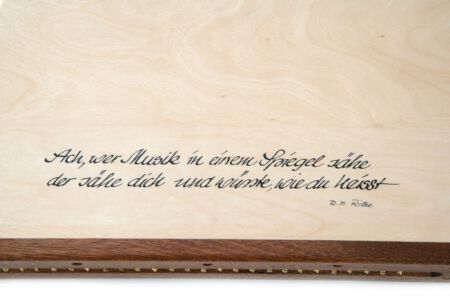 Ach, wer Musik in einem Spiegel sähe
der sähe dich und wüsste, wie du heisst
R. M. Rilke